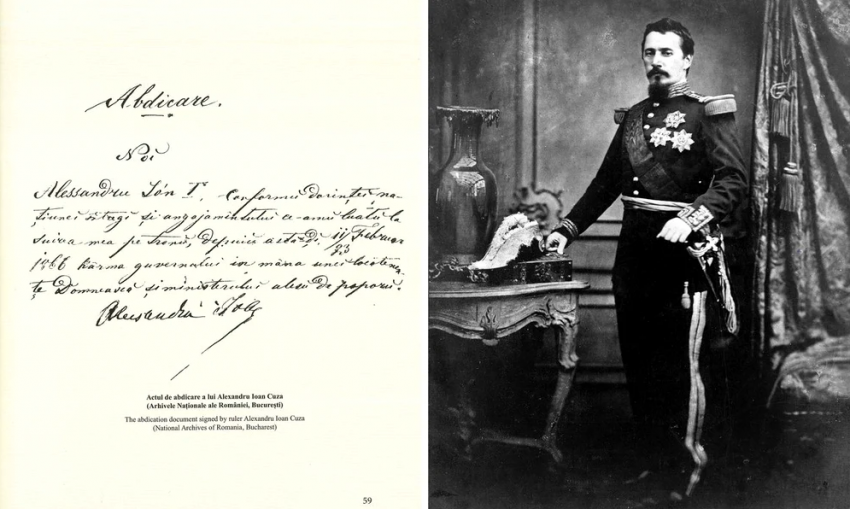 Abdicare.
Noi
Alessandru Ión I˙, Conformu dorinței na-
țiunei întregi și angajamîntului ce amu luatu la
suirea mea pe tronu, depuiu astă-dĭ 11/23 Februar
1866 kârma guvernului in mâna unei locotenen-
țe Domnească și ministerului alesu de poporu.
Alessandru Ión
Actul de abdicare a lui Alexandru Ioan Cuza
(Arhivele Naționale ale României, București)
The abdication document signed by ruler Alexandru Ioan Cuza
(National Archives of Romania, Bucharest)
59